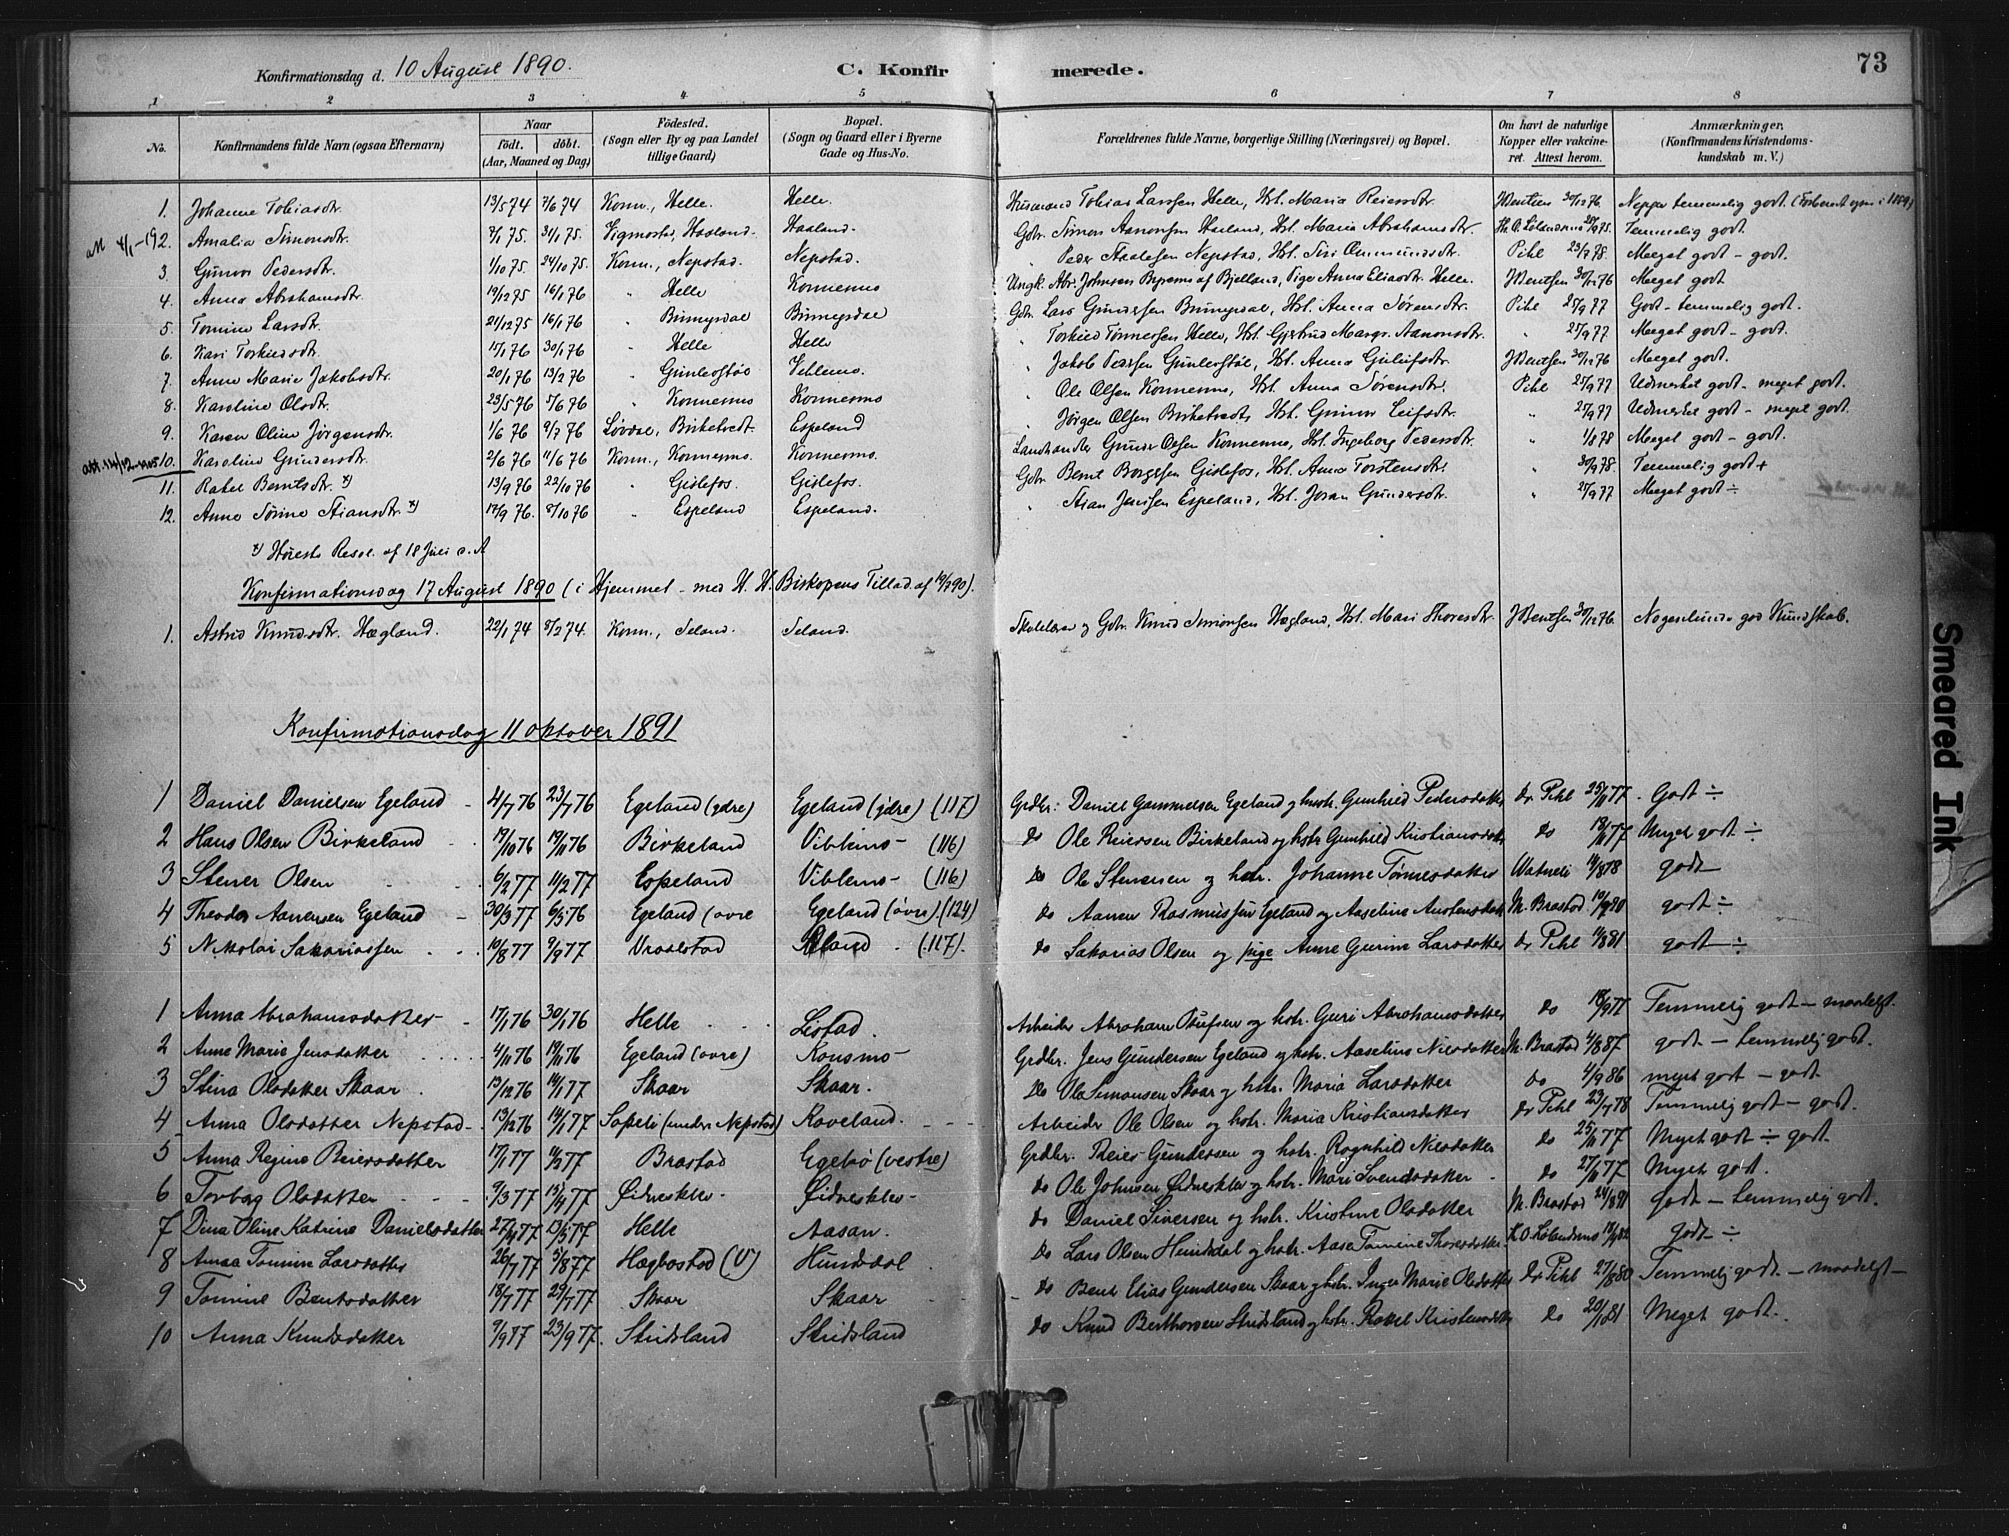 Konfirmationsdag d. 10 August 1890. C. Konfirmerede. 73
1 2 3 4 5 6 7 8
No. Konfirmandens fulde Navn (ogsaa Efternavn) Naar født. døbt. (Aar, Maaned og Dag) Födested. (Sogn eller By og paa Landet tillige Gaard) Bopæl. (Sogn og Gaard eller i Byerne Gade og Hus-No.) Forældrenes fulde Navne, borgerlige Stilling (Næringsvei) og Bopæl. Om havt de naturlige Kopper eller vakcineret. Attest herom. Anmærkninger. (Konfirmandens Kristendomskundskab m. V.)
1. Johanne Tobiasdtr. 13/5 74 7/6 74 Konn., Helle. Helle. Husmand Tobias Larssen Helle, Hst. Maria Reiersdtr. JBentsen 30/12 76. Neppe temmelig godt.
2. Amalia Simonsdtr. 8/1 75. 31/1 75. Haaland. Haaland. Gbr. Simon Aanonsen Haaland, Hst. Maria Abrahamsdtr. Temmelig godt.
3. Gunvor Pedersdtr. 1/10 75. 24/10 75. Konn., Nepstad. Nepstad. " Peder Staalesen Nepstad, Hst. Siri Omundsdtr. Pihl 23/7 78. Meget godt - godt.
4. Anna Abrahamsdtr. 19/12 75 16/1 76 " Helle Konnesmo Ungk. Abr. Johnsen af Bjelland, Pige Anna Eliasdtr. Helle. JBentsen 30/12 76 Meget godt
5. Tomine Larsdtr. 21/12 75 16/1 76 " Gbr. Lars Gundersen Hst. Anna Sørensdtr. Pihl 27/9 77 Godt - temmelig godt.
6. Kari Torkildsdtr. 15/1 76 30/1 76 " Helle Helle " Torkild Tønnessen Helle, Hst. Gjertrud Margr. Aanonsdtr. " 27/9 77 Meget godt - godt.
7. Anne Marie Jakobsdtr. 20/1 76 13/2 76 " Gunlefstøl Viblemo. " Jakob Gunlefstøl, Hst. Anna JBentsen 30/12 76 Meget godt.
8. Karoline Olsdtr. 23/5 76 5/6 76 " Konnesmo Konnesmo " Ole Olsen Konnesmo, Hst. Anna Sørensdtr. Pihl 27/9 77 Udmerket godt - meget godt.
9. Karen Oline Jørgensdtr. 1/6 76 9/7 76 Løvdal, Birketvedt. Espeland " Jørgen Olsen Birketvedt, Hst. Gunvor Leifsdtr. " 27/9 77 Udmerket godt - meget godt.
10. Karoline Gundersdtr. 2/6 76 11/6 76 Konn., Konnesmo. Konnesmo. Landhandler Gunder Olsen Konnesmo, Hst. Ingeborg Pedersdtr. " 1/8 78 Meget godt - godt.
11. Rakel Berntsdtr. x) 13/9 76 22/10 76 " Gislefos. Gislefos. Gbr. Bernt Børgesen Gislefos, Hst. Anna Torstensdtr. " 30/9 78. Temmelig godt +
12. Anne Tørine Stiansdtr. x) 17/9 76. 8/10 76 " Espeland Espeland. " Stian Jensen Espeland, Hst. Joran Gundersdtr. " 27/9 77 Meget godt ÷
x) Resol. af 18 Juli
Konfirmationsdag 17 August 1890 (i Hjemmet - med H. H. Biskopens Tillad. af 19/7 90).
1. Astrid Knudsdtr. Hægland. 22/1 74 8/2 74. Konn., Seland. Seland. Skolelærer og Gbr. Knud Simonsen Hægland, Hst. Mari Thoresdtr. JBentsen 30/12 76. Nogenlunde god Kundskab.
Konfirmationsdag 11 oktober 1891
1 Daniel Danielsen Egeland 4/7 76 23/7 76 Egeland (ydre) Egeland (ydre) (117) Grdbr: Daniel Gammelsen Egeland og hstr. Gunhild Pedersdatter dr. Pihl 25/11 77. Godt ÷
2 Hans Olsen Birkeland 19/10 76 19/11 76 Birkeland Viblemo - (116) do Ole Reiersen Birkeland og hstr. Gunhild Kristiansdatter do 18/11 77 Meget godt ÷
3 Stener Olsen 6/2 77 11/2 77 Espeland Viblemo - (116) do Ole Stenersen og hstr. Johanne Tørresdatter Watneli 14/8 78 godt
4 Theodor Aanensen Egeland 30/3 77 6/5 76 Egeland (øvre Egeland (øvre). (124) do Aanen Rasmussen Egeland og Aaseline M. Brastad 19/9 80 godt ÷
5 Nikolai Sakariassen 10/8 77 9/9 77 Vraalstad (117). do Sakarias Olsen og pige Anne Gurine Larsdatter dr Pihl 11/8 81 godt ÷
1 Anna Abrahamsdatter 17/1 76 30/1 76 Helle Listad. Arbeider Abraham Olufsen og hstr. Guri Abrahamsdatter do 18/9 77 Temmelig godt - maadelgt.
2 Anne Marie Jensdatter 4/11 76 19/11 76 Egeland (øvre) Konsmo - Grdbr. Jens Gundersen Egeland og hstr. Aaseline Nilsdatter M. Brastad 4/8 87 godt - temmelig godt.
3 Stina Olsdatter Skaar 13/12 76 14/1 77 Skaar Skaar. do Ole Simonsen Skaar og hstr. Maria Larsdatter do 4/9 86 meget godt - godt
4 Anna Olsdatter Nepstad 13/12 76 14/1 77 Sapeli (under Nepstad) Roveland. Arbeider Ole Olsen og hstr. Maria Kristiansdatter dr Pihl 23/7 78 Temmelig godt - godt.
5 Anna Regine Reiersdatter 17/1 77 11/3 77 Brastad Egebø (vestre) Grdbr. Reier Gundersen og hstr. Rognhild Nilsdatter do 25/11 77 Meget godt ÷ godt.
6 Torborg Olsdatter 9/3 77 13/4 77 Ødneskleiv Ødneskleiv - do Ole Johnsen Ødneskleiv og hstr. Mari Svendsdatter do 27/11 77 Meget godt.
7 Dina Oline Katrine Danielsdatter 27/4 77 13/5 77 Helle Aasan. do Daniel Siversen og hstr. Kristine Olsdatter M. Brastad 24/8 91 Godt - temmelig godt.
8 Anna Tomine Larsdatter 26/7 77 5/8 77 Hægbostad (V) Hundsdal. do Lars Olsen Hundsdal og hstr. Aase Tomine Thoresdatter. godt ÷
9 Tomine Bentsdatter 18/7 77 29/7 77 Skaar Skaar do Bent Elias Gundersen Skaar og hstr. Inger Marie Olsdatter dr Pihl 27/8 80 Temmelig godt - maadelgt -
10 Anna Knudsdatter 9/9 77 23/9 77. Stridsland Stridsland do Knud Berthorsen Stridsland og hstr. Rakel Kristensdatter do 20/1 81 Meget godt.
Smeared Ink